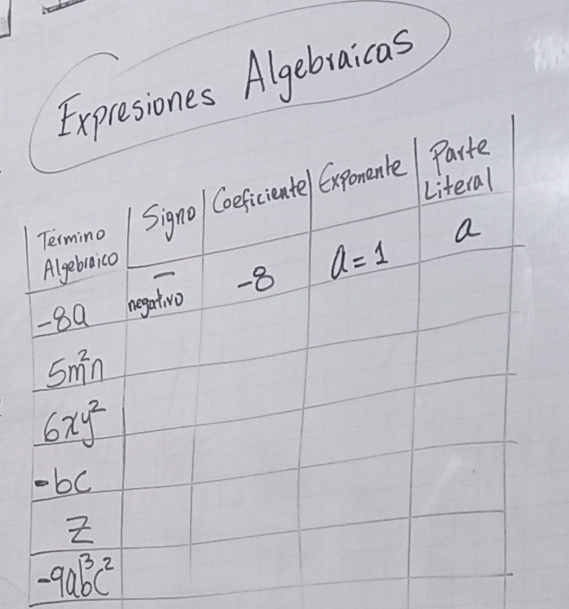 Expresiones Algebraicas
Término Algebraico | Signo | Coeficiente | Exponente | Parte Literal
-8a | − negativo | -8 | a=1 | a
5m²n
6xy²
-bc
z
-9ab³c²